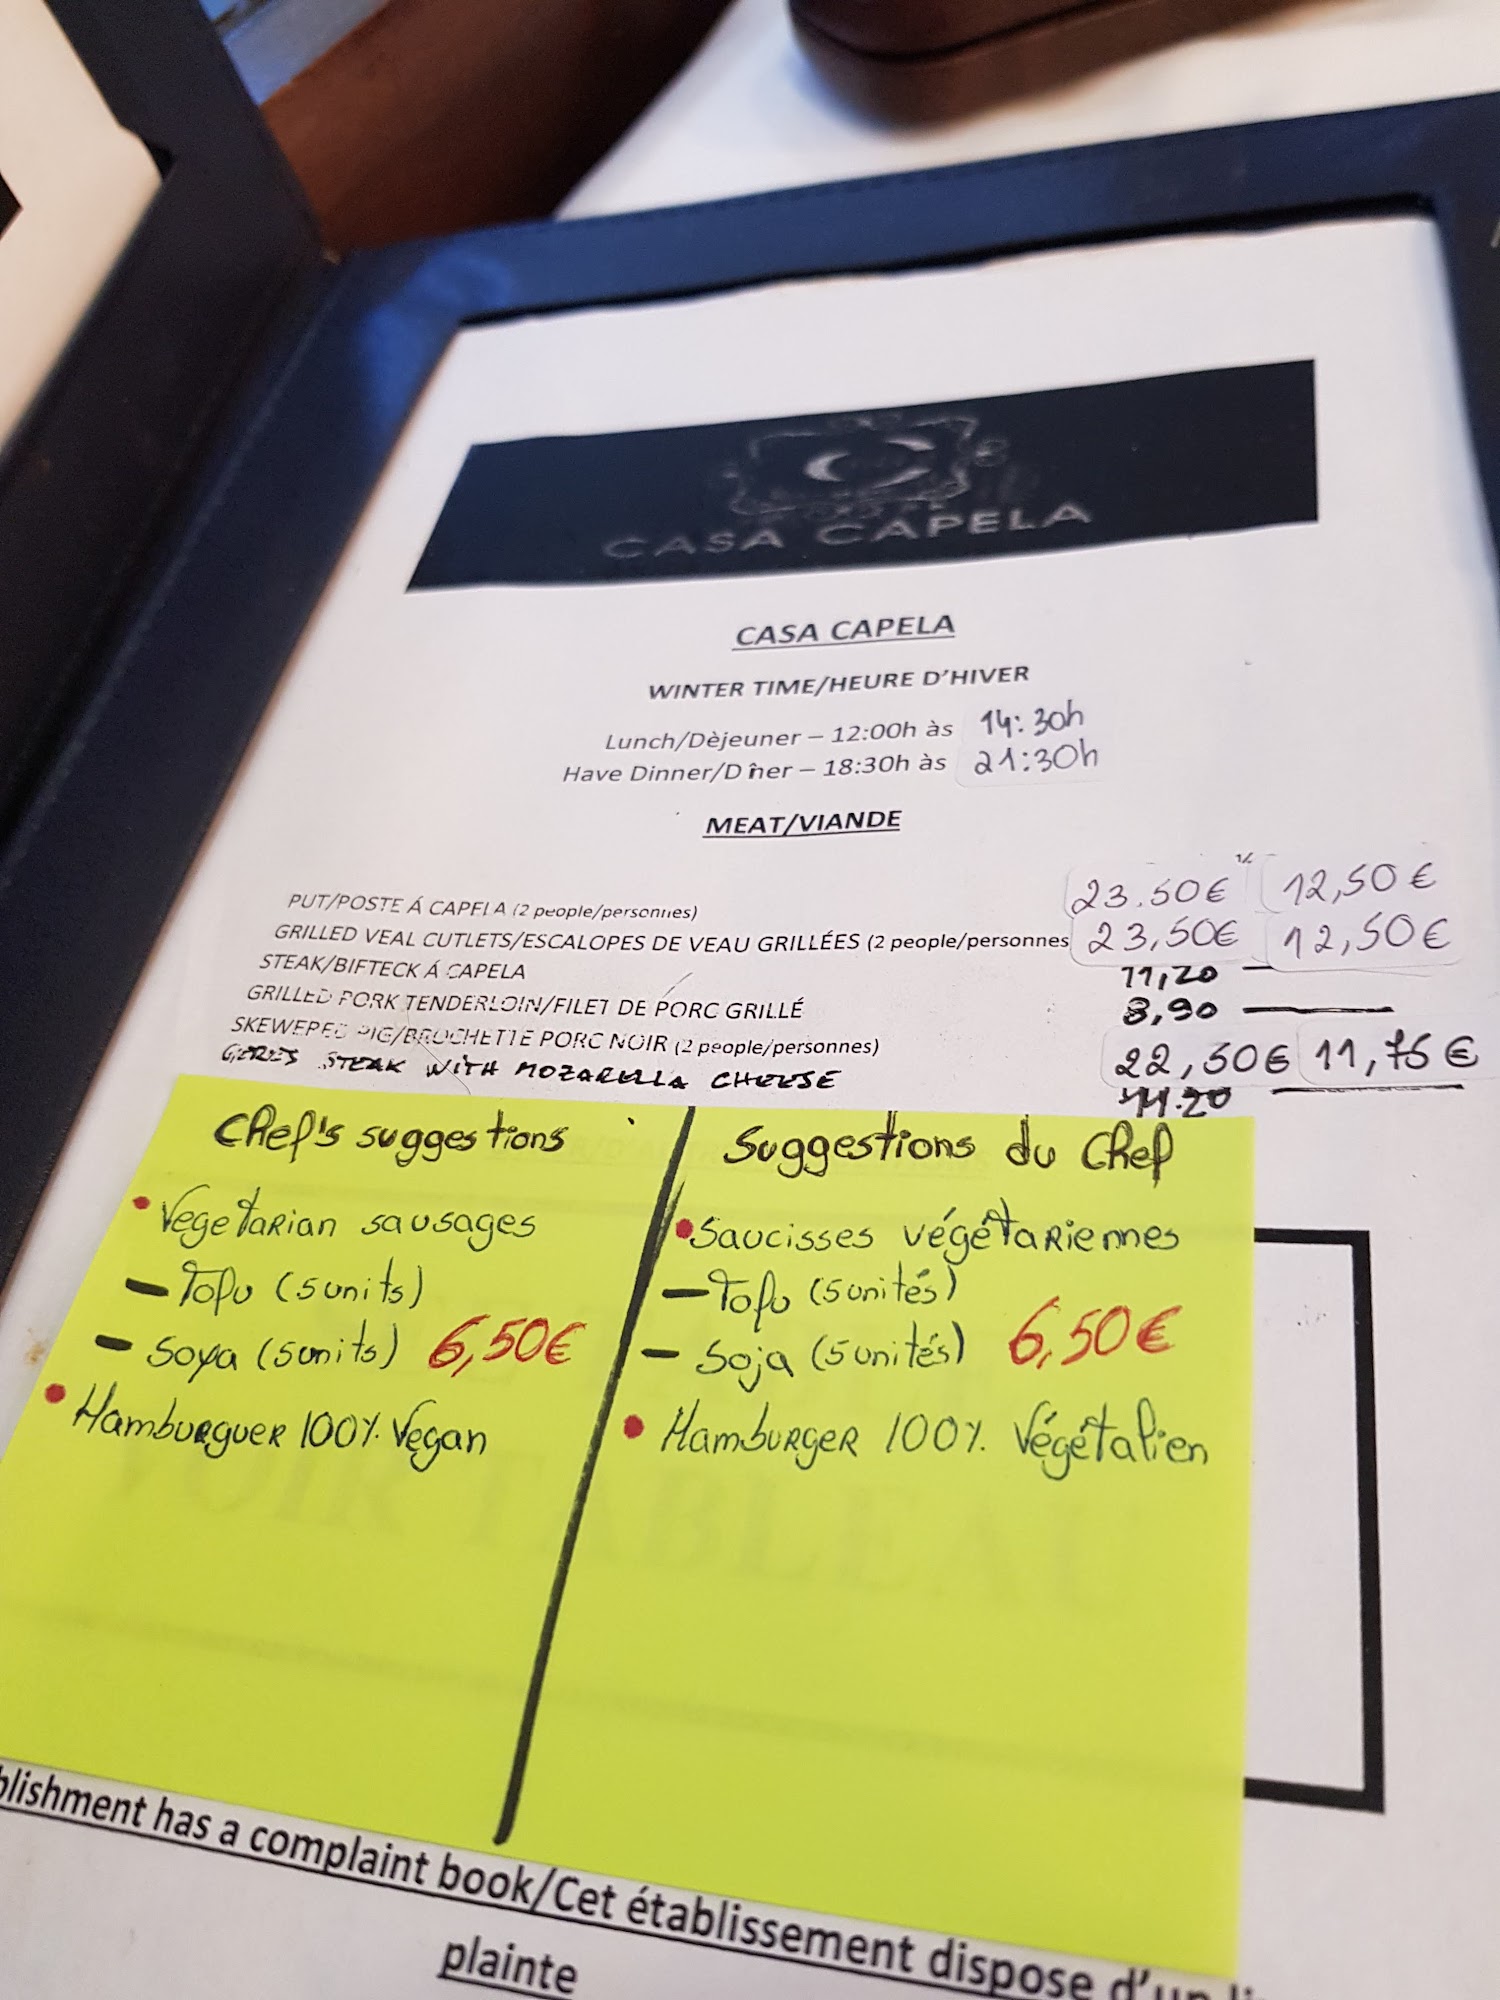 CASA CAPELA
CASA CAPELA
WINTER TIME/HEURE D'HIVER
Lunch/Dèjeuner – 12:00h às 14:30h
Have Dinner/Dîner – 18:30h às 21:30h
MEAT/VIANDE
PUT/POSTE Á CAPELA (2 people/personnes) 23.50€ ½ 12,50€
GRILLED VEAL CUTLETS/ESCALOPES DE VEAU GRILLÉES (2 people/personnes 23,50€ 12,50€
STEAK/BIFTECK Á CAPELA 11,20 —
GRILLED PORK TENDERLOIN/FILET DE PORC GRILLÉ 8,90 —
SKEWERED PIG/BROCHETTE PORC NOIR (2 people/personnes) 22,50€ 11,75€
STEAK WITH MOZARELLA CHEESE 11.20 —
Chef's suggestions
• Vegetarian sausages
– Tofu (5 units)
– Soya (5 units) 6,50€
• Hamburguer 100% Vegan
Suggestions du Chef
• Saucisses végétariennes
– Tofu (5 unités)
– Soja (5 unités) 6,50€
• Hamburger 100% Végétalien
blishment has a complaint book/Cet établissement dispose d'un
plainte